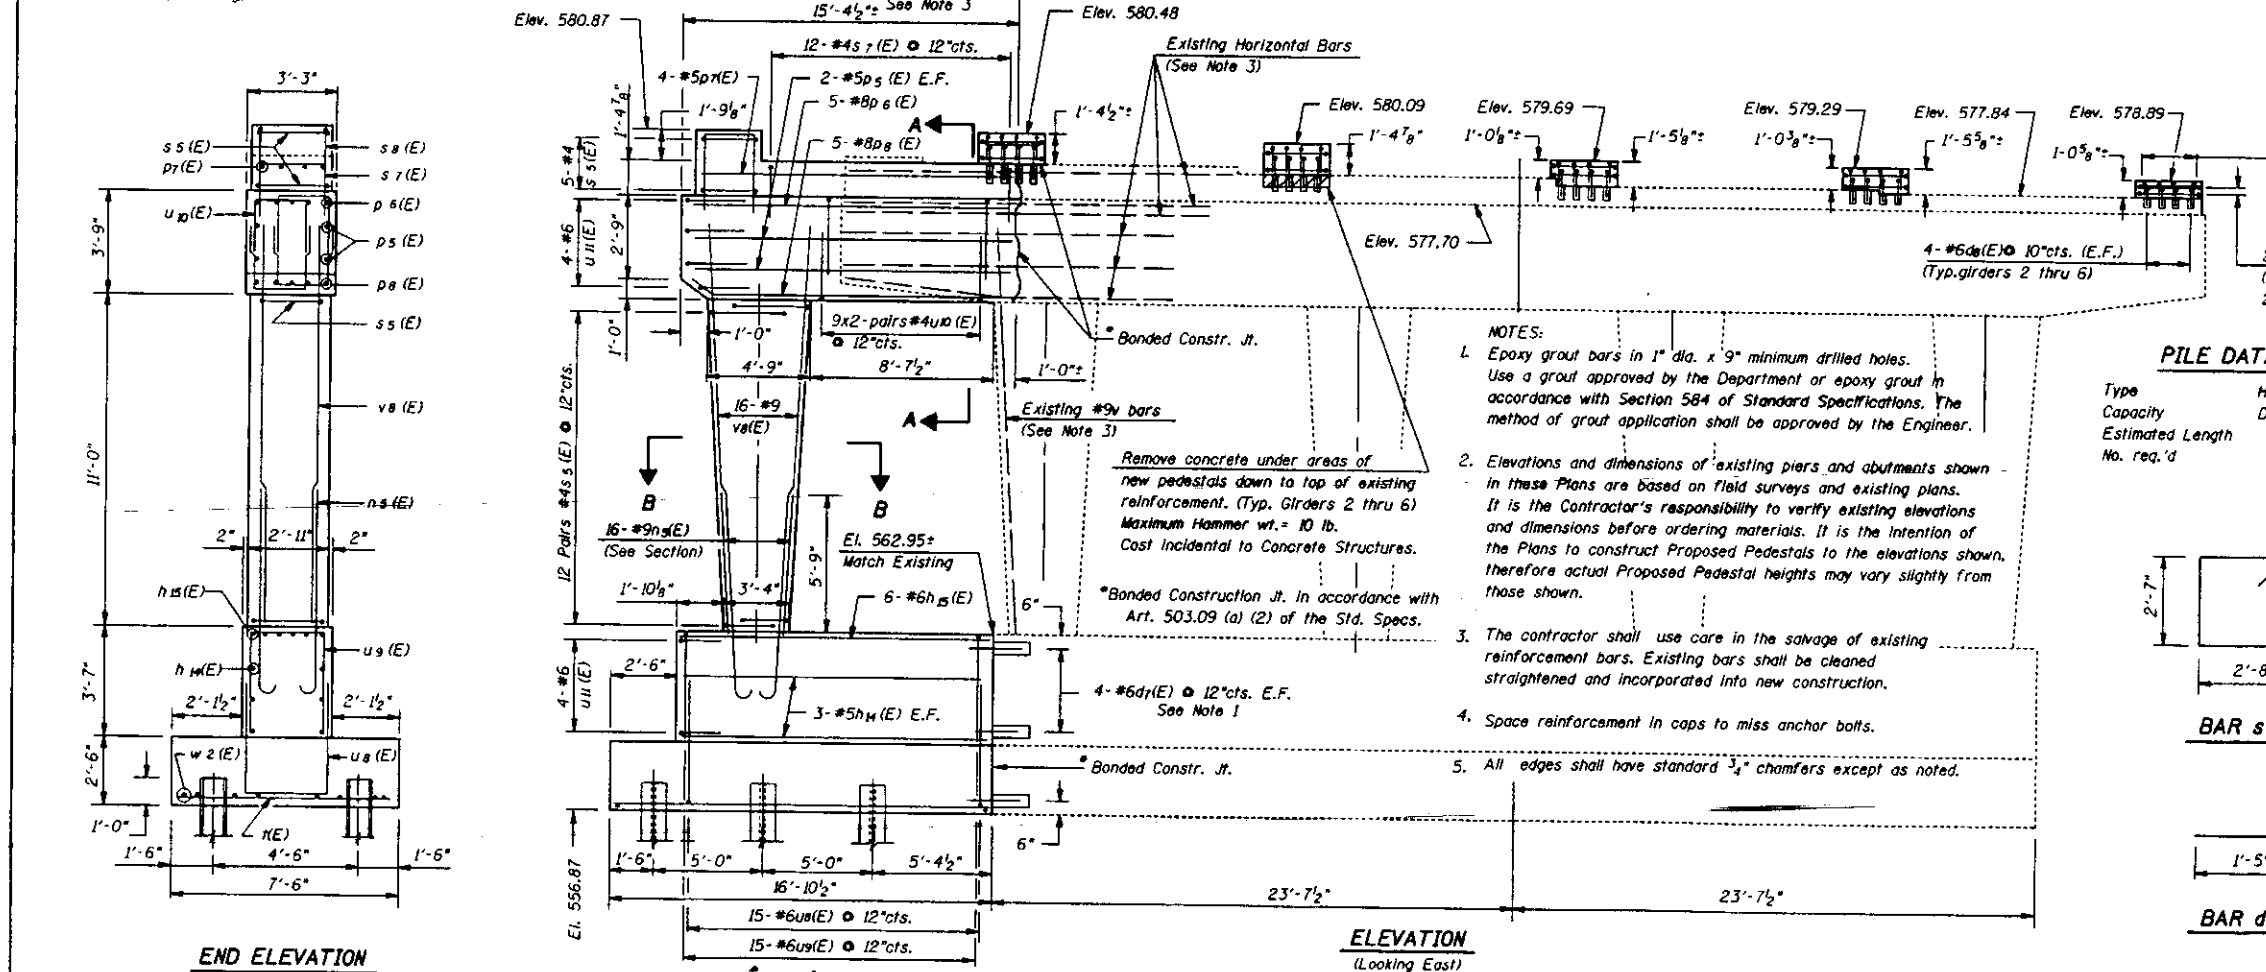 END ELEVATION
3'-3"
s 5 (E)
p7 (E)
s 8 (E)
s 7 (E)
u 10 (E)
p 6 (E)
p 5 (E)
p 8 (E)
s 5 (E)
3'-9"
11'-0"
v8 (E)
n 5 (E)
2"
2'-11"
2"
h 15 (E)
h 14(E)
u 9 (E)
3'-7"
2'-1½"
2'-1½"
w 2 (E)
u 8 (E)
2'-6"
1'-0"
t(E)
1'-6"
4'-6"
1'-6"
7'-6"
Elev. 580.87
15'-4½"± See Note 3
Elev. 580.48
12- #4s 7 (E) @ 12"cts.
Existing Horizontal Bars
(See Note 3)
4- #5p7(E)
2- #5p 5 (E) E.F.
5- #8p 6 (E)
5- #8p 8 (E)
1'-4⅞"
1'-9⅛"
A
1'-4½"±
Elev. 580.09
1'-4⅞"
Elev. 579.69
1'-0⅛"±
1'-5⅛"±
Elev. 579.29
1'-0⅜"±
Elev. 577.84
1'-5⅝"±
Elev. 578.89
1-0⅝"±
5- #4
s 5 (E)
4- #6
u 11 (E)
2'-9"
1'-0"
Elev. 577.70
4- #6d8(E)@ 10"cts. (E.F.)
(Typ.girders 2 thru 6)
1'-0"
9x2-pairs #4u10 (E)
@ 12"cts.
* Bonded Constr. Jt.
4'-9"
8'-7½"
1'-0"±
12 Pairs #4s 5 (E) @ 12"cts.
16- #9
v8(E)
A
Existing #9v bars
(See Note 3)
B
B
Remove concrete under areas of
new pedestals down to top of existing
reinforcement. (Typ. Girders 2 thru 6)
Maximum Hammer wt.= 10 lb.
Cost Incidental to Concrete Structures.
16- #9n5(E)
(See Section)
El. 562.95±
Match Existing
5'-9"
1'-10⅛"
3'-4"
6- #6h 15 (E)
*Bonded Construction Jt. in accordance with
Art. 503.09 (a) (2) of the Std. Specs.
6"
4- #6
u11 (E)
2'-6"
3- #5h 14 (E) E.F.
4- #6d7(E) @ 12"cts. E.F.
See Note 1
* Bonded Constr. Jt.
6"
El. 556.87
1'-6"
5'-0"
5'-0"
5'-4½"
16'-10½"
23'-7½"
23'-7½"
15- #6u8(E) @ 12"cts.
15- #6u9(E) @ 12"cts.
ELEVATION
(Looking East)
NOTES:
1. Epoxy grout bars in 1" dia. x 9" minimum drilled holes.
Use a grout approved by the Department or epoxy grout in
accordance with Section 584 of Standard Specifications. The
method of grout application shall be approved by the Engineer.
2. Elevations and dimensions of existing piers and abutments shown
in these Plans are based on field surveys and existing plans.
It is the Contractor's responsibility to verify existing elevations
and dimensions before ordering materials. It is the intention of
the Plans to construct Proposed Pedestals to the elevations shown,
therefore actual Proposed Pedestal heights may vary slightly from
those shown.
3. The contractor shall use care in the salvage of existing
reinforcement bars. Existing bars shall be cleaned
straightened and incorporated into new construction.
4. Space reinforcement in caps to miss anchor bolts.
5. All edges shall have standard ¾" chamfers except as noted.
PILE DAT
Type
Capacity
Estimated Length
No. req.'d
2'-7"
2'-8
BAR s
1'-5
BAR d